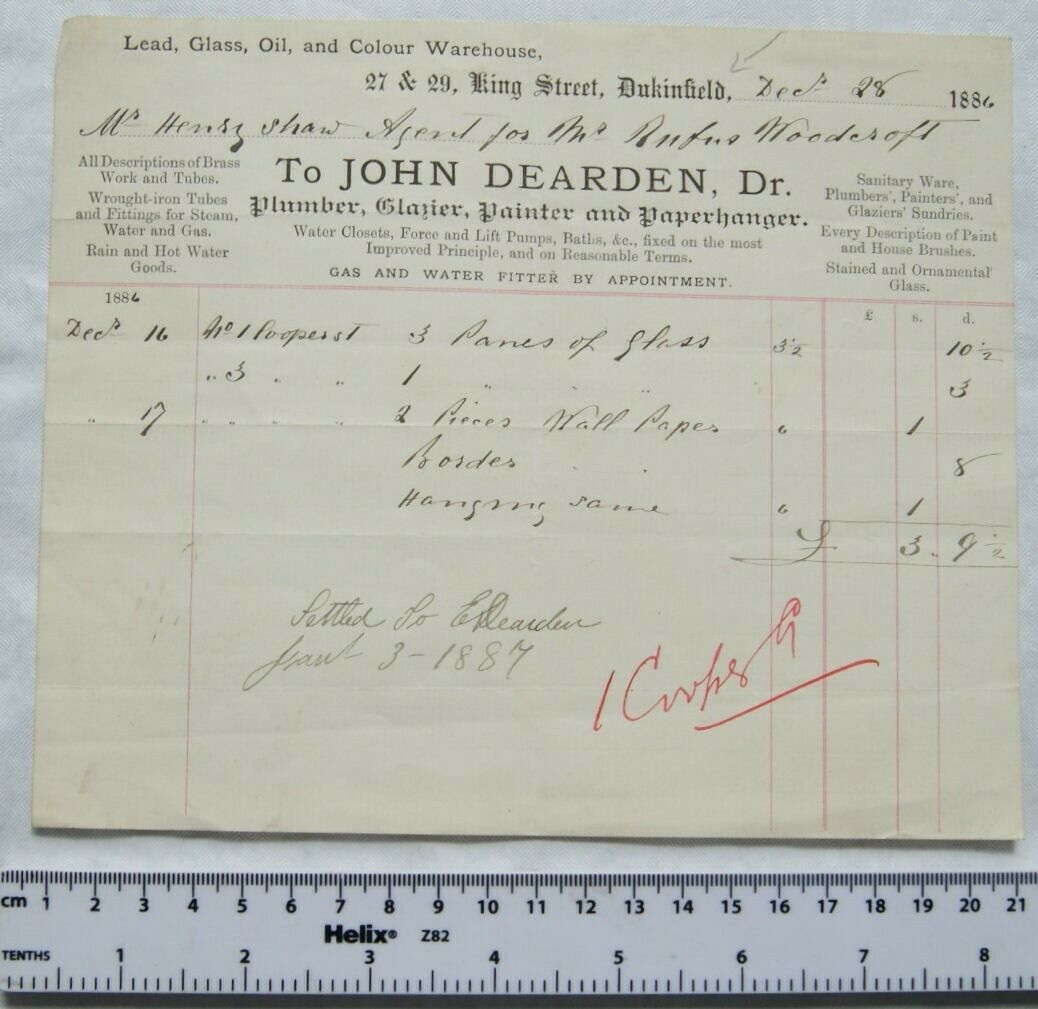 Lead, Glass, Oil, and Colour Warehouse,
27 & 29, King Street, Dukinfield, Decr 28 1886
Mr Henry Shaw Agent for Mr Rufus Woodcroft
All Descriptions of Brass
Work and Tubes.
Wrought-iron Tubes
and Fittings for Steam,
Water and Gas.
Rain and Hot Water
Goods.
To JOHN DEARDEN, Dr.
Plumber, Glazier, Painter and Paperhanger.
Water Closets, Force and Lift Pumps, Baths, &c., fixed on the most
Improved Principle, and on Reasonable Terms.
GAS AND WATER FITTER BY APPOINTMENT.
Sanitary Ware,
Plumbers', Painters', and
Glaziers' Sundries.
Every Description of Paint
and House Brushes.
Stained and Ornamental
Glass.
1886 £ s. d.
Decr 16 No 1 Cooper st 3 Panes of Glass 3½ 10½
" 3 " " 1 " " " 3
" 17 " " " " 2 Pieces Wall Paper 6 1
Border " " 8
Hanging same 6 1
£ 3 " 9½
Settled Jo E Dearden
Janr 3-1887
1 Cooper St
cm 1 2 3 4 5 6 7 8 9 10 11 12 13 14 15 16 17 18 19 20 21
Helix® Z82
TENTHS 1 2 3 4 5 6 7 8